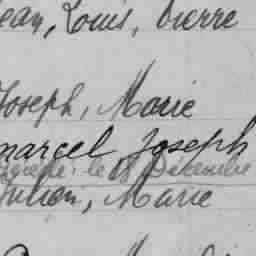 Jean, Louis, Pierre
Joseph, Marie
marcel Joseph
le 18 Décembre
Julien, Marie